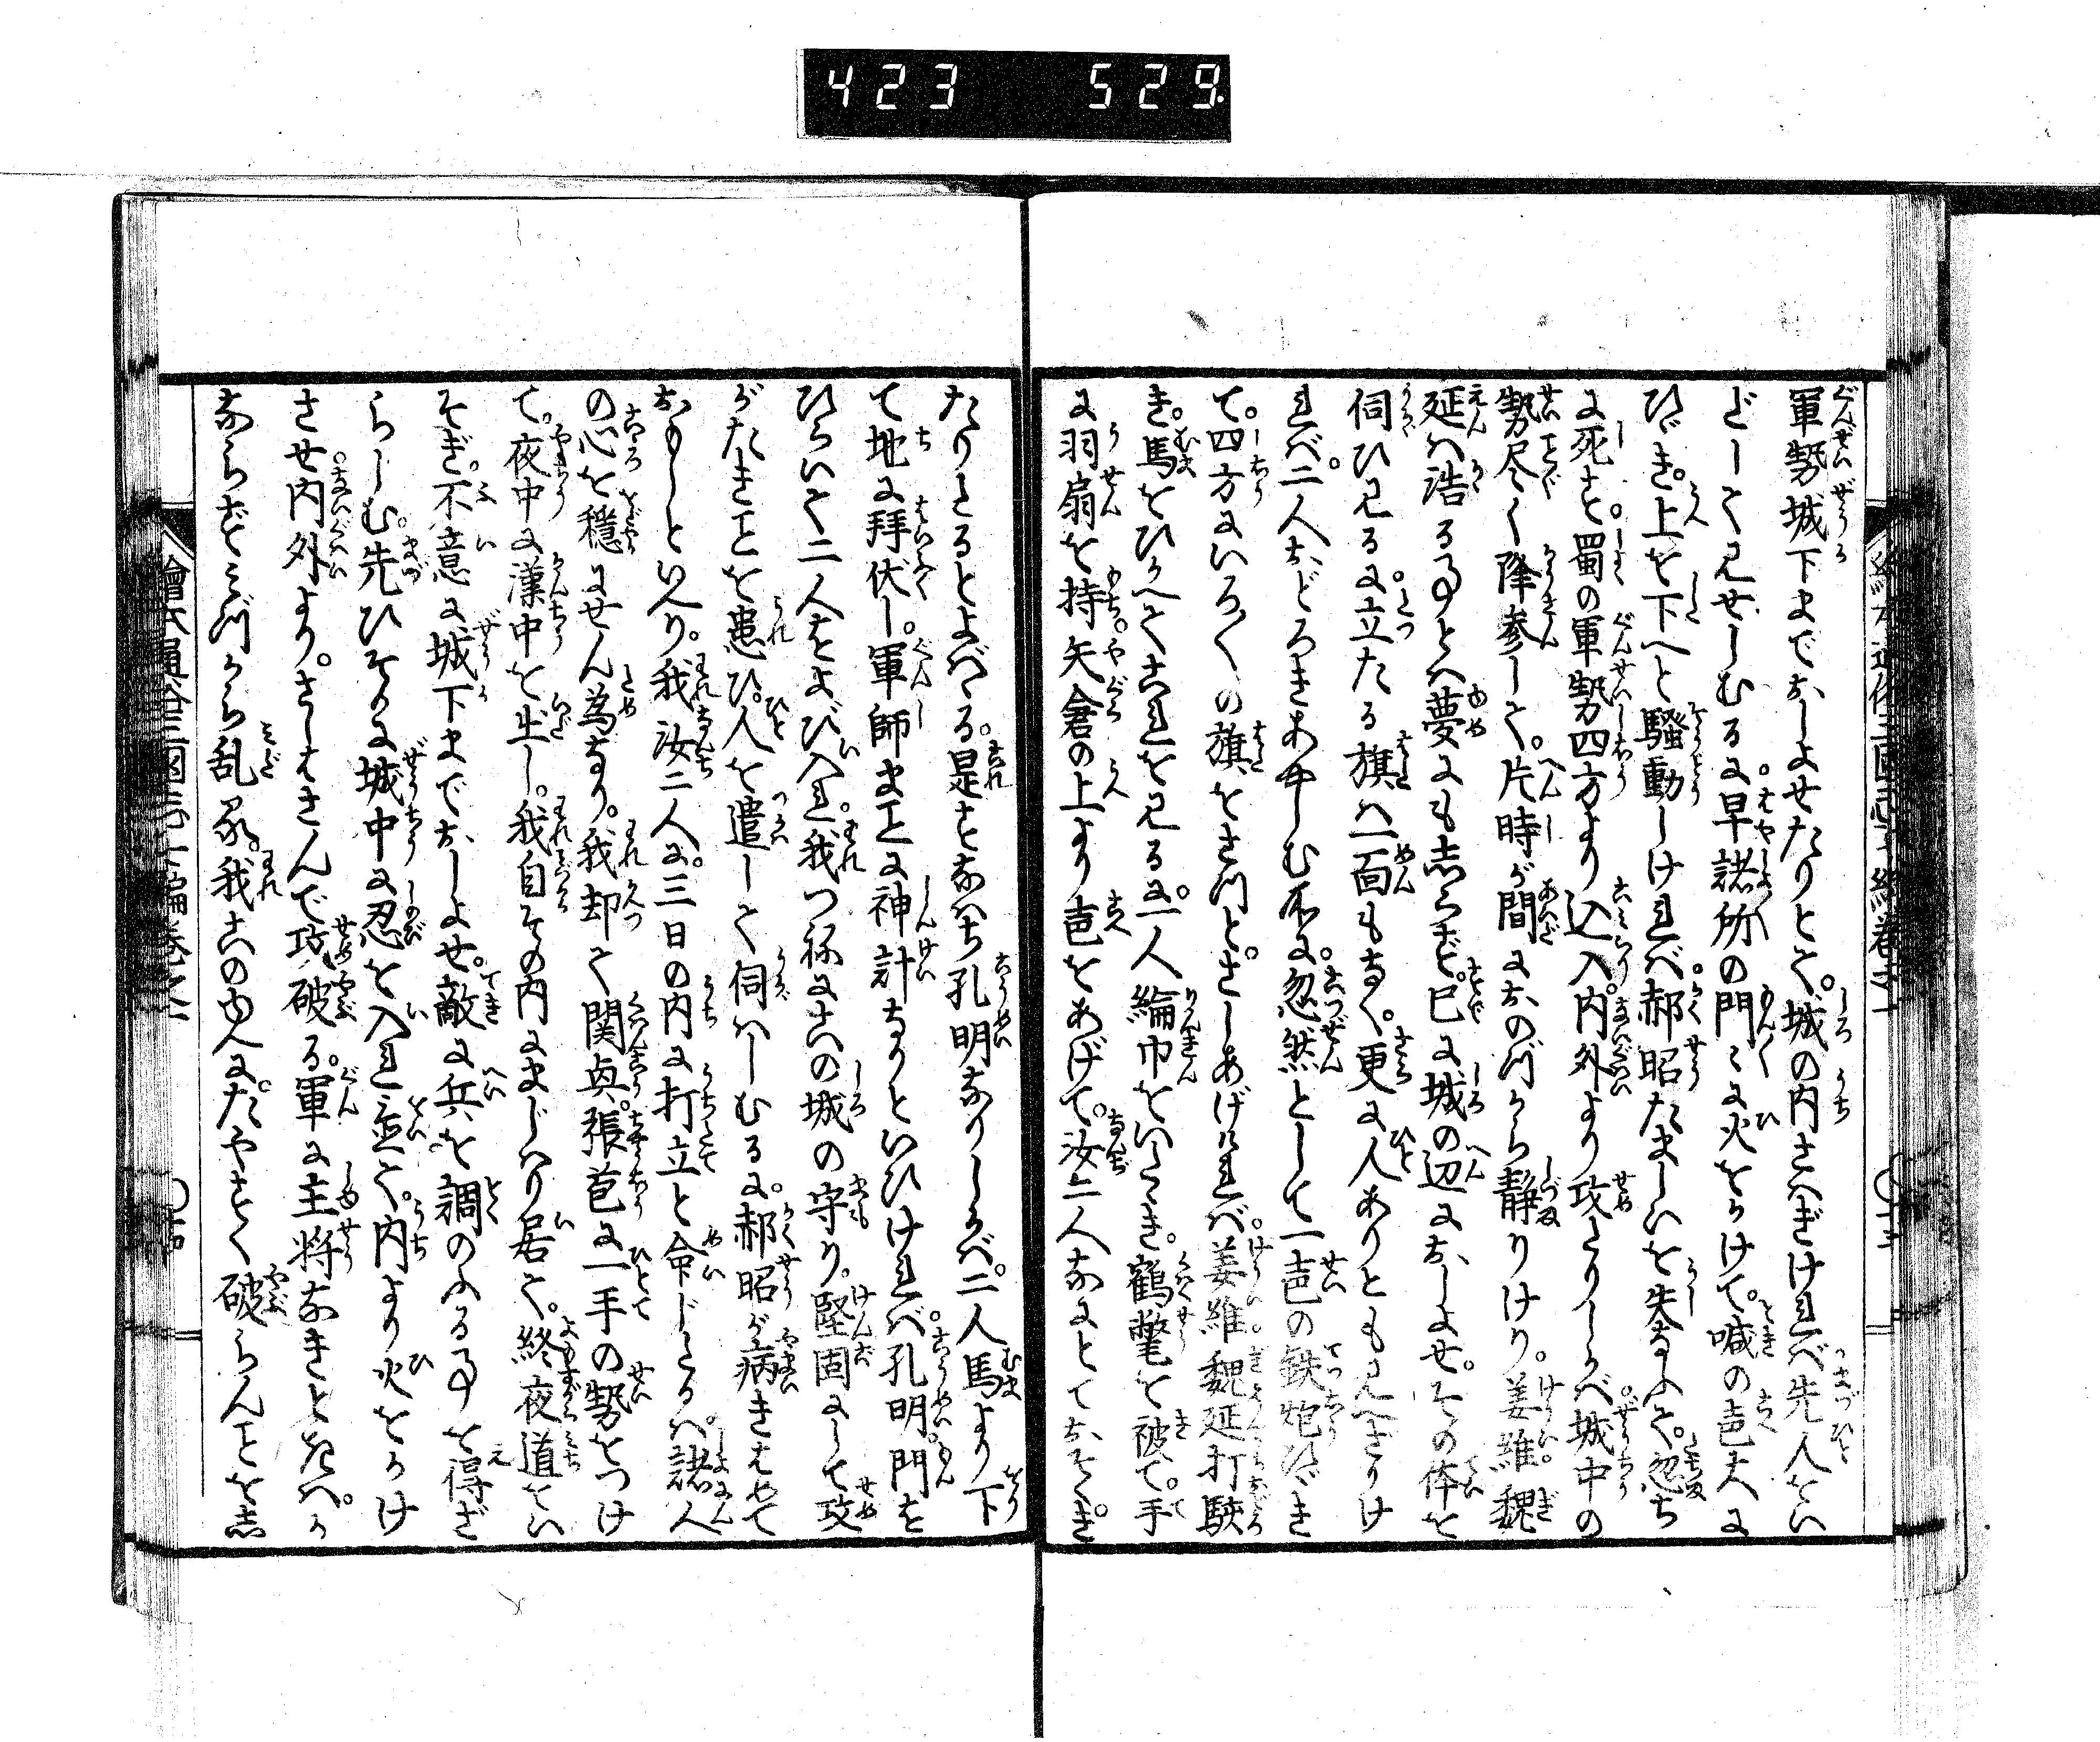 423 529
軍勢城下までおしよせたりとて。城の内さへぎければ先人をい
だして見せしむるに早諸所の門々に火をかけて。喊の声大に
ひゞき。上を下へと騒動しければ郝昭たましいを失なふて。忽ち
に死す。蜀の軍勢四方より込入。内外より攻たりしかば城中の
勢尽く降参して。片時が間におのづから静りけり。姜維魏
延は浩る事とへ夢にも志らず。已に城の辺におしよせ。その体を
伺ひ見るに立たる旗は一面もなく。更に人ありとも見へざりけ
れば。二人おどろきあやしむ所に。忽然として一声の鉄炮ひゞき
て。四方にいろ〱の旗をさつと。さしあげければ。姜維魏延打駭
き。馬をひかへてこれを見るに。一人綸巾をいたゞき。鶴氅を被て。手
に羽扇を持。矢倉の上より声をあげて。汝二人なにとておそき。
たりたるとよばゝる。是すなはち孔明なりしかば。二人馬より下
て地に拝伏し。軍師まことに神計なりといひければ。孔明門を
ひらいて二人をよび入れ。我つねにこの城の守り。堅固にして攻
がたきことを患ひ。人を遣して伺はしむるに。郝昭が病きはめて
おもしと以へり。我汝二人に。三日の内に打立と命じたるは。諸人
の心を穏にせん為なり。我却て関興。張苞に一手の勢をつけ
て。夜中に漢中を出し。我自その内にまじはり居て。終夜道をい
そぎ。不意に城下までおしよせ。敵に兵を調のふる事を得ざ
らしむ。先ひそかに城中に忍を入れ置て。内より火をかけ
させ内外より。さしはさんで攻破る。軍に主将なきときは。か
ならずみづから乱る。我この内人に。たやすく破らんことを志